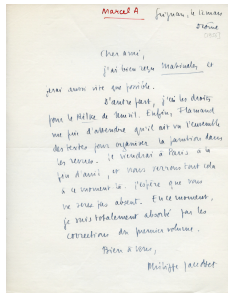 Marcel A
Grignan, le 12 mars
Drôme
Cher ami,
j'ai bien reçu Maternelle, et
vite que possible.
D'autre part, j'ai les droits
pour le de Enfin, Flamand
me prie d'attendre qu'il ait vu l'ensemble
des textes pour organiser la parution dans
les revues. Je viendrai à Paris à la
fin d'avril, et nous verrons tout cela
à ce moment-là. J'espère que vous
ne serez pas absent. En ce moment,
je suis totalement absorbé par les
corrections du premier volume.
Bien à vous,
Philippe Jaccottet